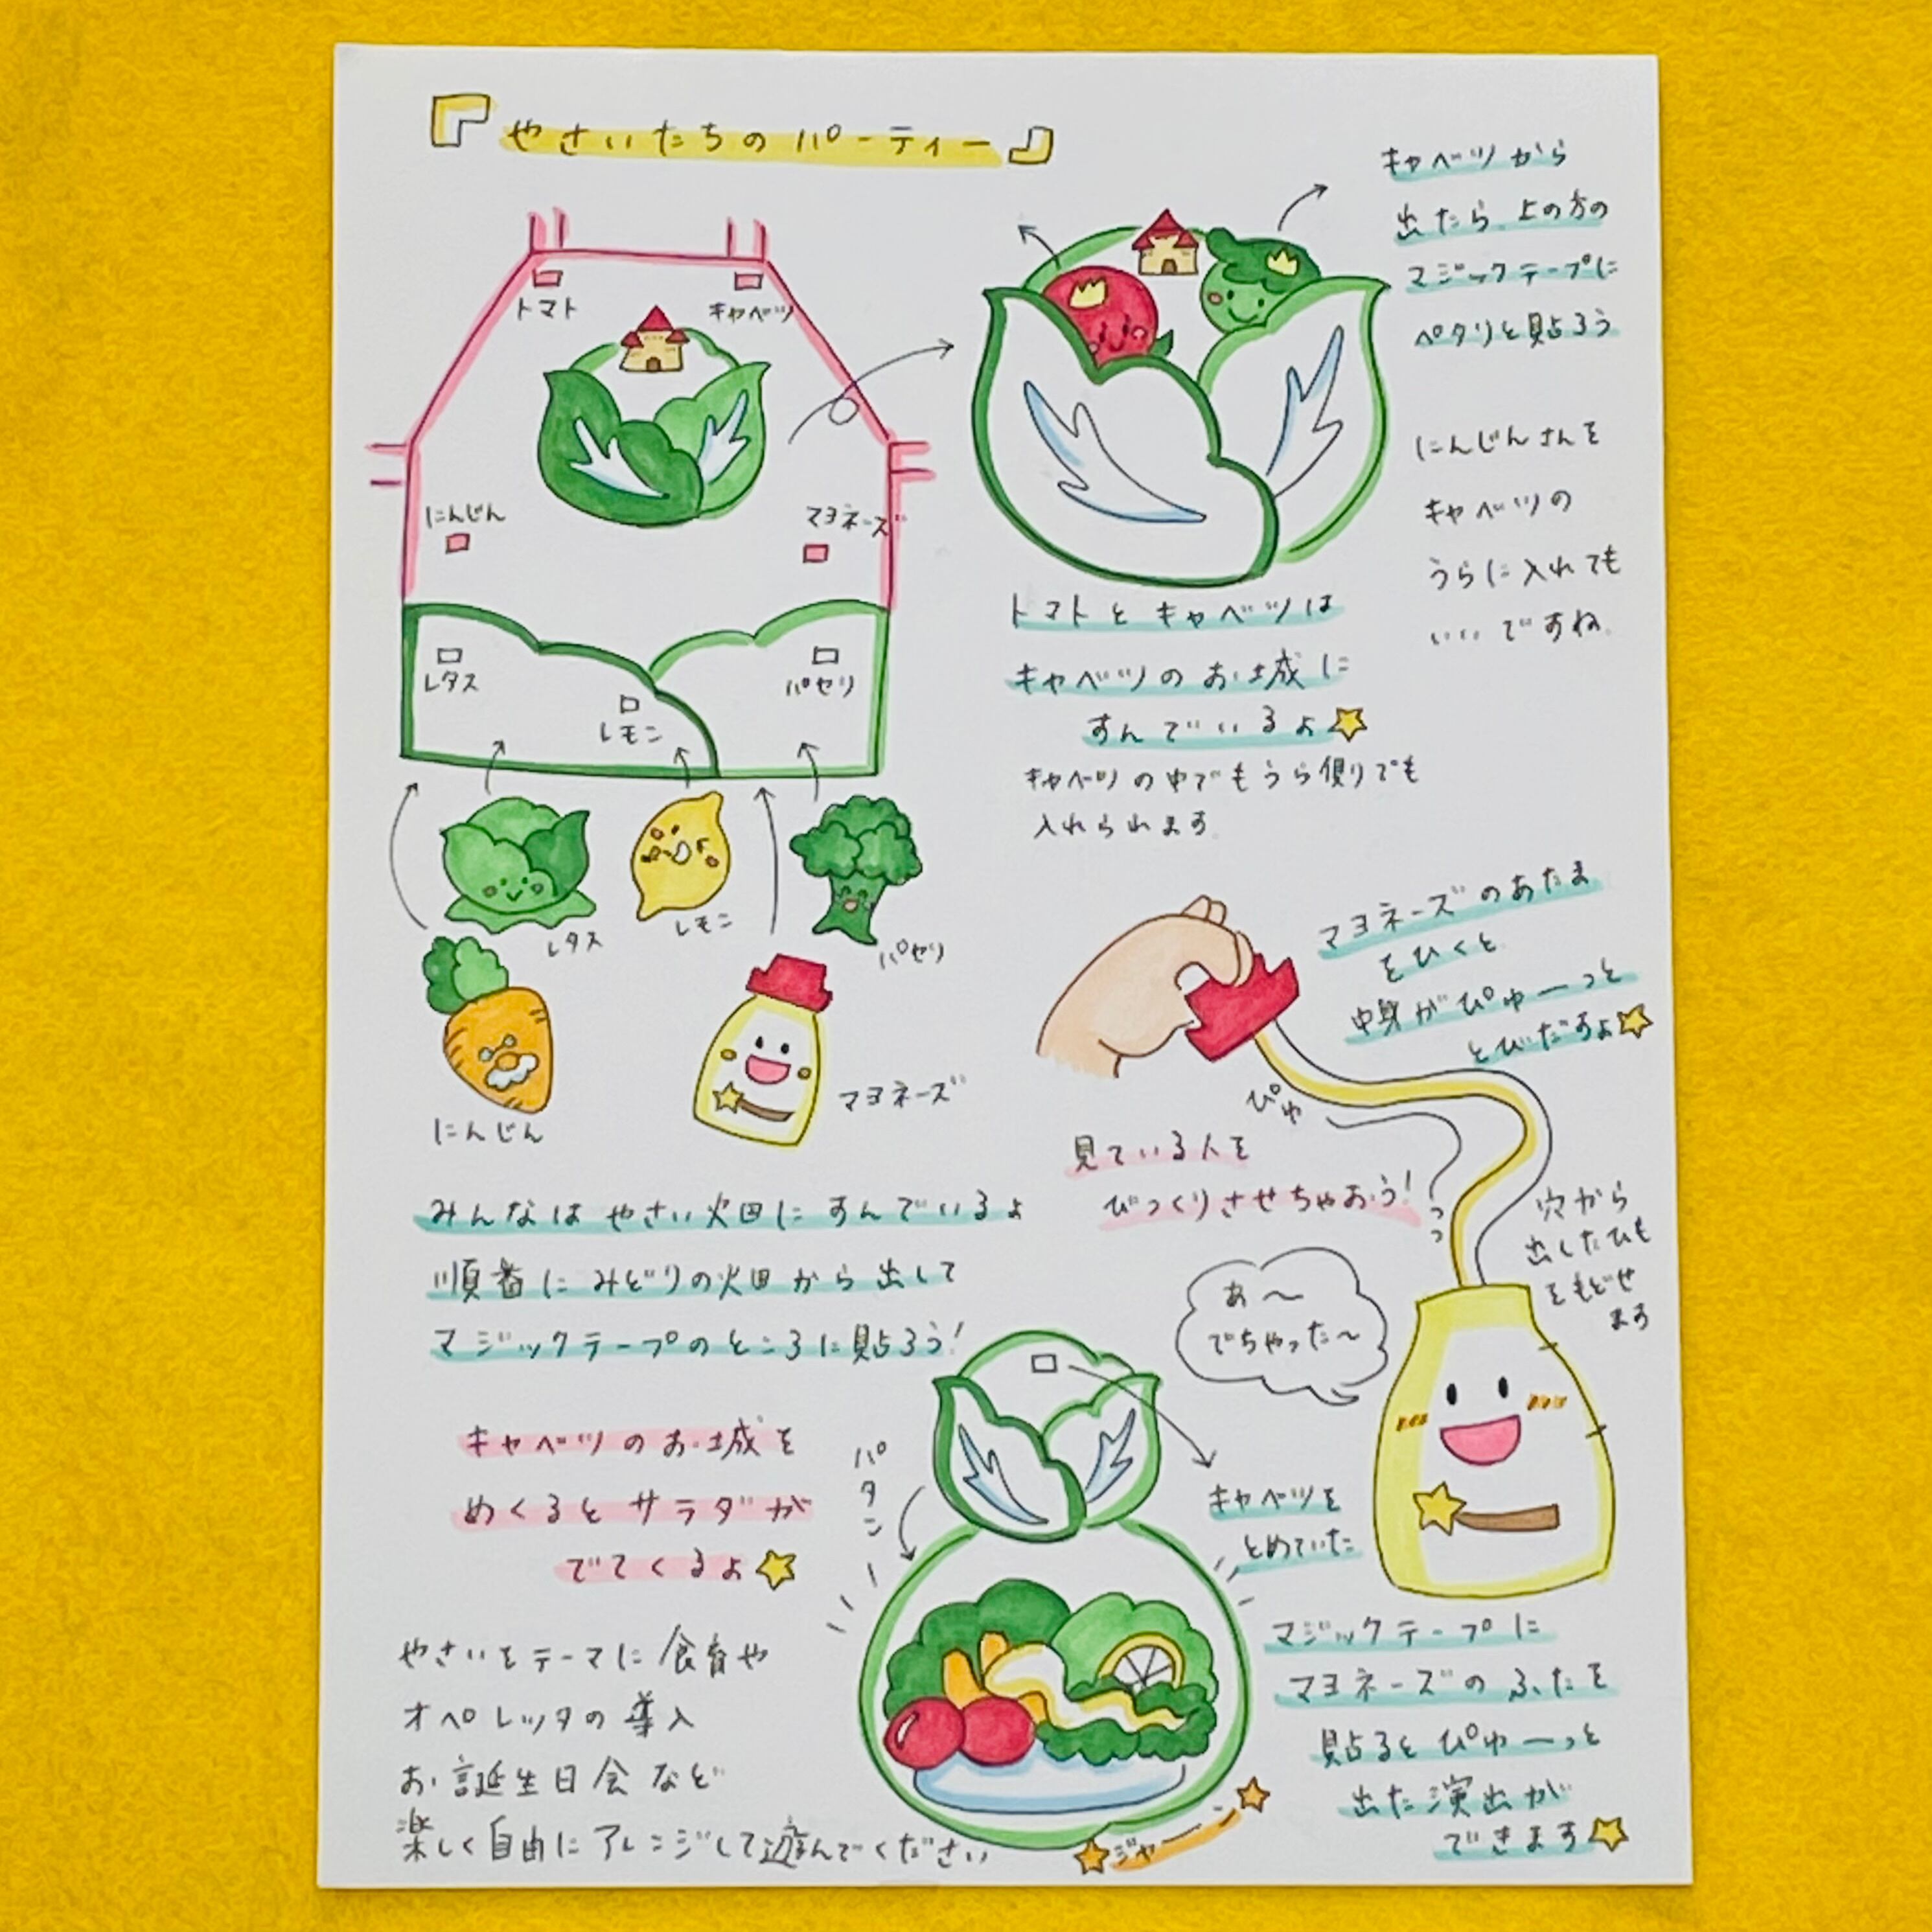 『やさいたちのパーティー』
トマト
キャベツ
にんじん
マヨネーズ
レタス
レモン
パセリ
レタス
レモン
パセリ
にんじん
マヨネーズ
キャベツから
出たら、上の方の
マジックテープに
ペタリと貼ろう
にんじんさんを
キャベツの
うらに入れても
いいですね。
トマトとキャベツは
キャベツのお城に
すんでいるよ
キャベツの中でもうら側でも
入れられます。
マヨネーズのあたま
をひくと
中身がぴゅーっと
とびだすよ
ぴゅ
見ている人を
びっくりさせちゃおう!
穴から
出したひも
をもどせ
ます
あ〜
でちゃった〜
みんなはやさい畑にすんでいるよ
順番にみどりの畑から出して
マジックテープのところに貼ろう!
キャベツのお城を
めくるとサラダが
でてくるよ
パタンー
キャベツを
とめていた
マジックテープに
マヨネーズのふたを
貼るとぴゅーっと
出た演出が
できます
やさいをテーマに食育や
オペレッタの導入
お誕生日会など
楽しく自由にアレンジして遊んでください
ジャーン